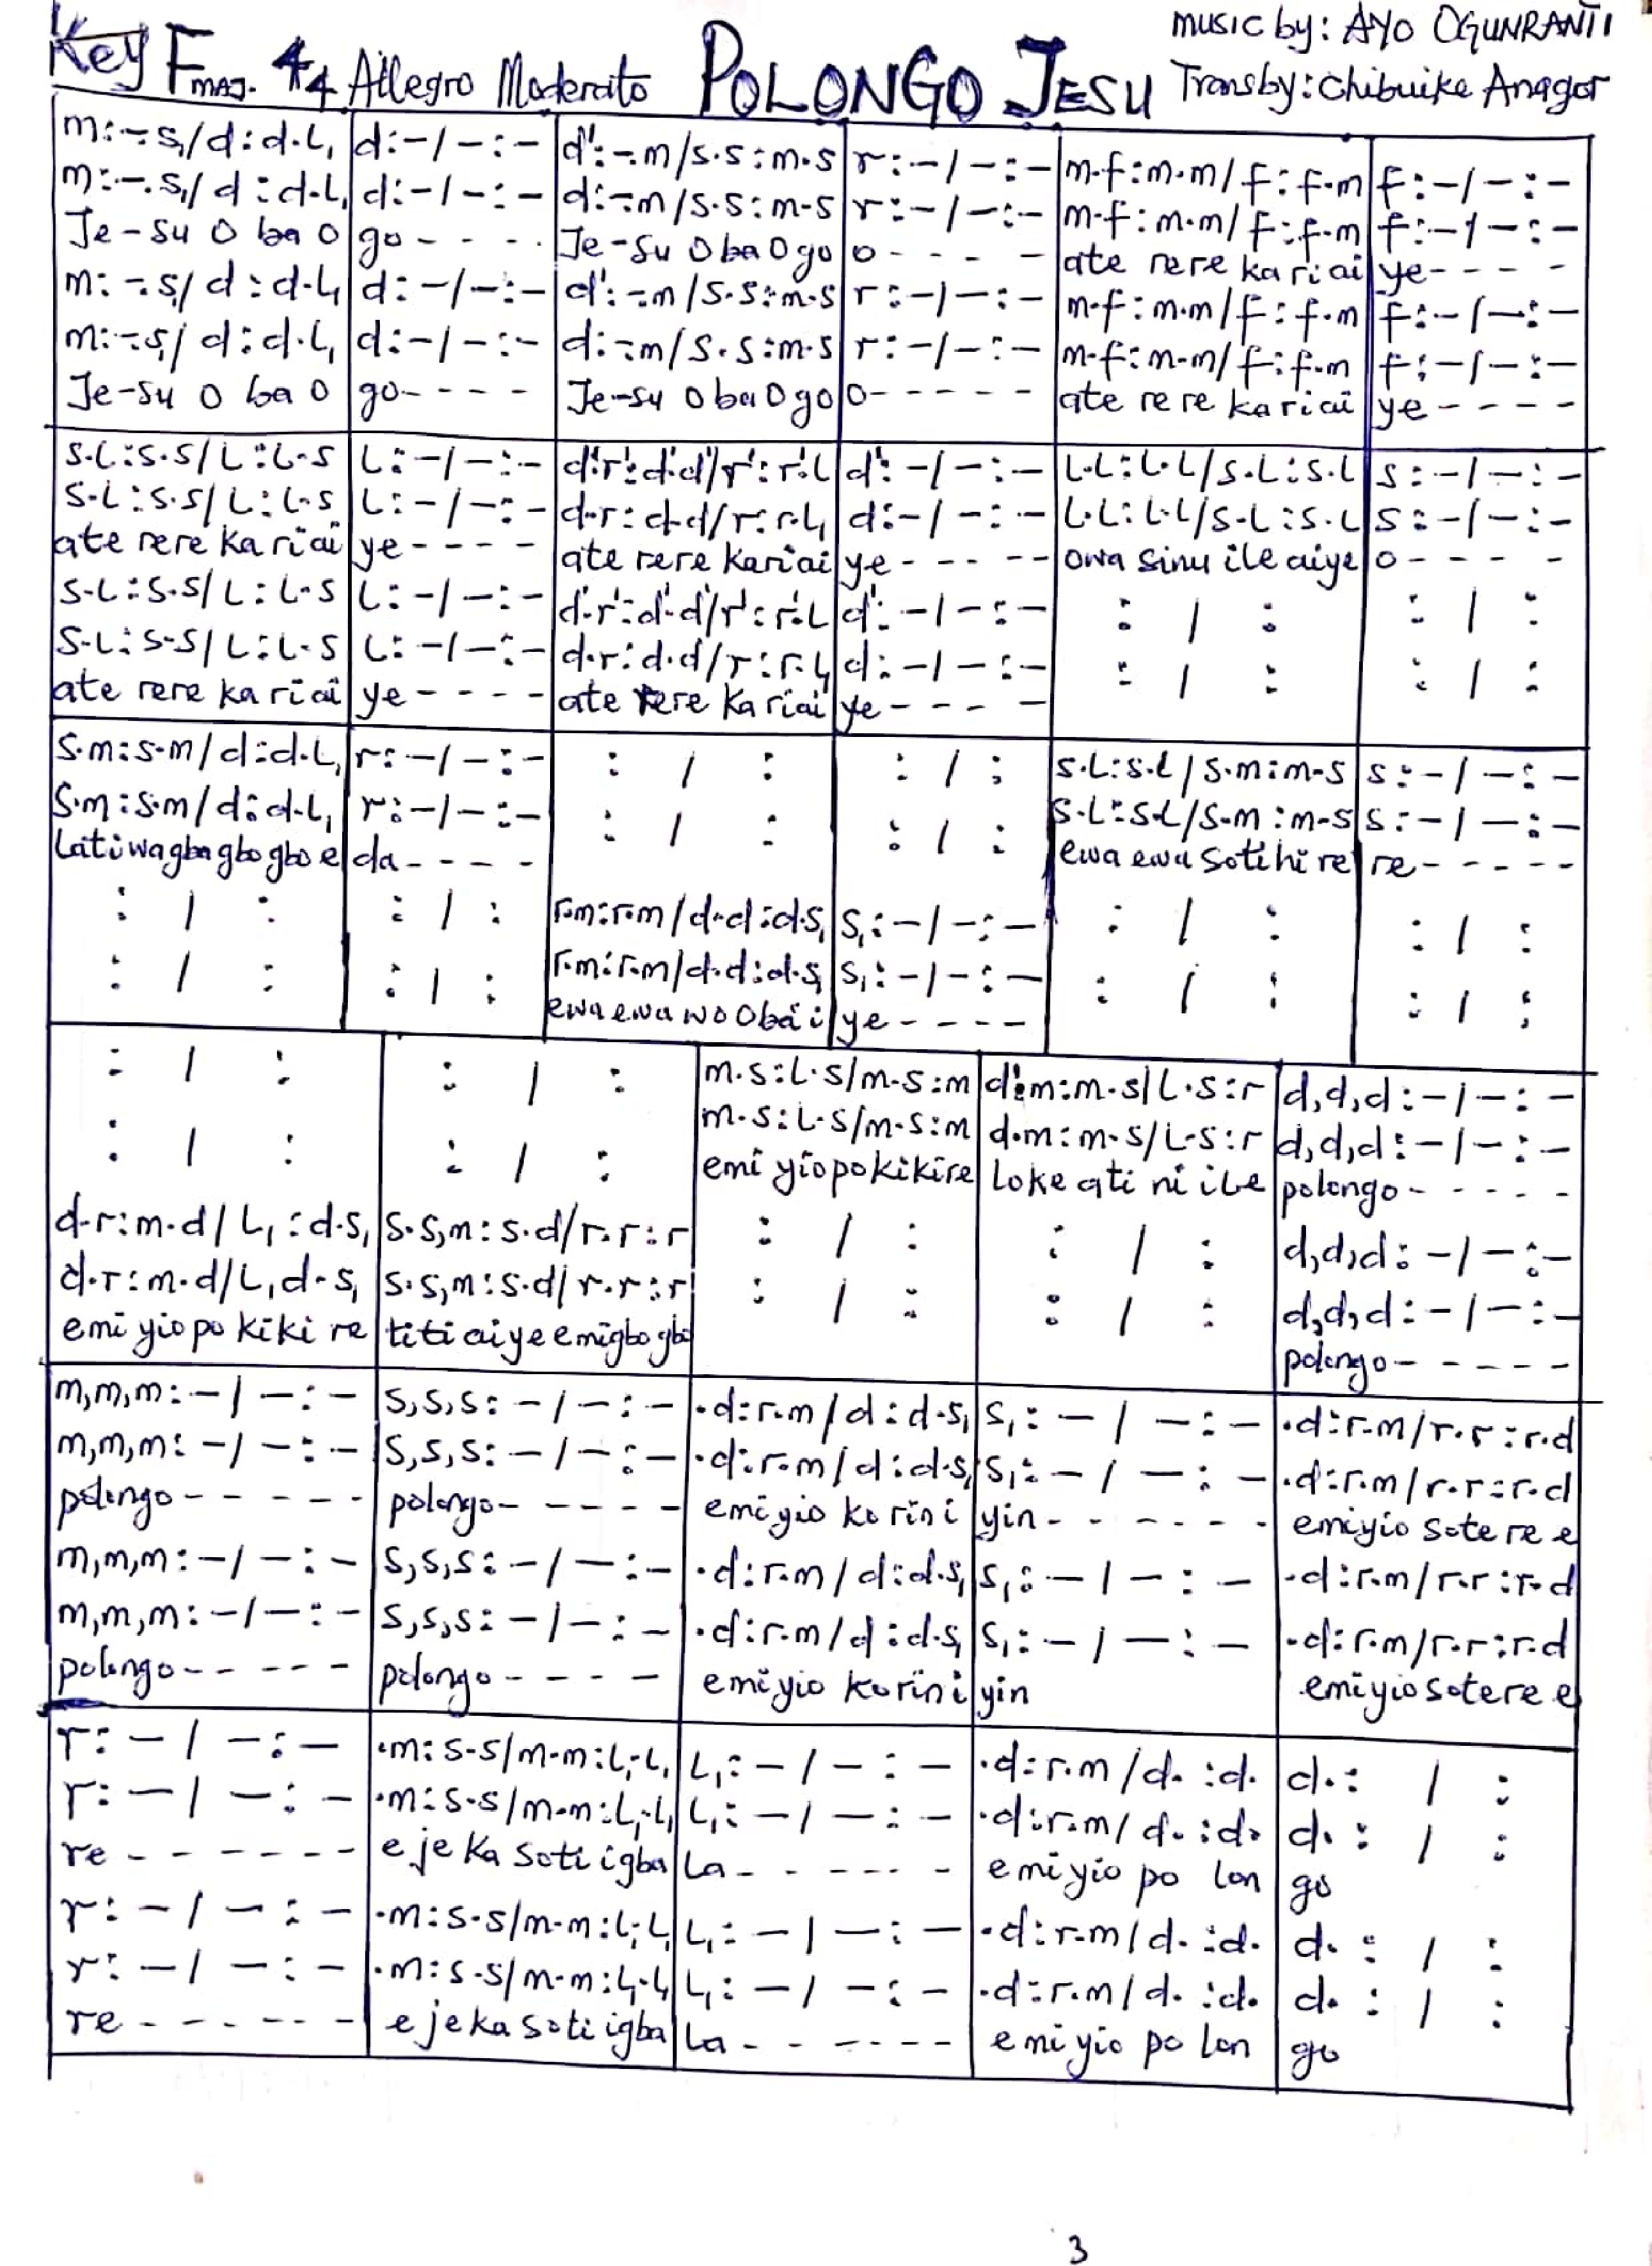 music by: AYO OGUNRANTI
Key F MAJ. 4/4 Allegro Moderato POLONGO JESU Trans by: Chibuike Anagor
m:-.s₁/d:d.L₁ | d:-/-:- | d':-.m/s.s:m.s | r:-/-:- | m.f:m.m/f:f.m | f:-/-:-
m:-.s₁/d:d.L₁ | d:-/-:- | d:-.m/s.s:m-s | r:-/-:- | m-f:m.m/f:f.m | f:-/-:-
Je-su O ba O | go - - - . | Je-su O ba O go | o - - - - | ate rere ka riai | ye - - - -
m:-.s₁/d:d-L₁ | d:-/-:- | d':-.m/s.s:m.s | r:-/-:- | m-f:m.m/f:f.m | f:-/-:-
m:-.s₁/d:d.L₁ | d:-/-:- | d:-.m/s.s:m.s | r:-/-:- | m-f:m-m/f:f.m | f:-/-:-
Je-su O ba O | go - - - - | Je-su O ba O go | o - - - - - | ate re re ka riai | ye - - - -
s-L:s.s/L:L-s | L:-/-:- | d'.r':d'.d'/r':r'.L | d':-/-:- | L.L:L.L/s.L:s.L | s:-/-:-
s-L:s.s/L:L-s | L:-/-:- | d-r:d-d/r:r.L₁ | d:-/-:- | L.L:L.L/s-L:s.L | s:-/-:-
ate rere ka riai | ye - - - - | ate rere kariai | ye - - - - - | owa sinu ile aiye | o - - - -
s-L:s.s/L:L-s | L:-/-:- | d'-r':d'-d'/r':r'.L | d':-/-:- | : / : | : / :
s-L:s-s/L:L-s | L:-/-:- | d.r:d.d/r:r.L₁ | d:-/-:- | : / : | : / :
ate rere ka riai | ye - - - - | ate rere ka riai | ye - - - -
s.m:s-m/d:d.L₁ | r:-/-:- | : / : | : / : | s.L:s.L/s.m:m-s | s:-/-:-
s.m:s.m/d:d-L₁ | r:-/-:- | : / : | : / : | s-L:s-L/s-m:m-s | s:-/-:-
Latiwagbagbogbo e | da - - - - | ewa ewa sotihi re | re - - - - -
: / : | : / : | r-m:r-m/d-d:d.s₁ | s₁:-/-:- | : / : | : / :
: / : | : / : | r-m:r-m/d-d:d.s₁ | s₁:-/-:- | : / : | : / :
ewa ewa wo Oba i | ye - - - -
: / : | : / : | m.s:L.s/m-s:m | d'.m:m-s/L.s:r | d,d,d:-/-:-
: / : | : / : | m-s:L-s/m-s:m | d.m:m-s/L-s:r | d,d,d:-/-:-
emi yio po kikire | Loke ati ni ile | polongo - - - - -
d-r:m.d/L₁:d.s₁ | s.s,m:s.d/r.r:r | : / : | : / : | d,d,d:-/-:-
d.r:m.d/L₁d-s₁ | s.s,m:s.d/r.r:r | : / : | : / : | d,d,d:-/-:-
emi yio po kiki re | titi aiye emigbogbo | polongo - - - - -
m,m,m:-/-:- | s,s,s:-/-:- | .d:r.m/d:d-s₁ | s₁:-/-:- | .d:r-m/r.r:r.d
m,m,m:-/-:- | s,s,s:-/-:- | .d:r.m/d:d.s₁ | s₁:-/-:- | .d:r.m/r.r:r.d
polongo - - - - - | polongo - - - - - | emi yio ko rin i | yin - - - - - - | emiyio sote re e
m,m,m:-/-:- | s,s,s:-/-:- | .d:r.m/d:d.s₁ | s₁:-/-:- | -d:r.m/r.r:r-d
m,m,m:-/-:- | s,s,s:-/-:- | .d:r.m/d:d-s₁ | s₁:-/-:- | -d:r.m/r-r:r.d
polongo - - - - - | polongo - - - - | emi yio korin i | yin | emiyiosotere e
r:-/-:- | .m:s-s/m-m:L₁-L₁ | L₁:-/-:- | .d:r.m/d. :d. | d.: / :
r:-/-:- | .m:s-s/m-m:L₁-L₁ | L₁:-/-:- | .d:r.m/d. :d. | d.: / :
re - - - - - - | e je ka soti igba | La - - - - - | emi yio po lon | go
r:-/-:- | .m:s-s/m-m:L₁-L₁ | L₁:-/-:- | .d:r-m/d. :d. | d.: / :
r:-/-:- | .m:s-s/m-m:L₁-L₁ | L₁:-/-:- | .d:r.m/d. :d. | d.: / :
re - - - - - - | e jeka soti igba | La - - - - - - | emi yio po lon | go
3